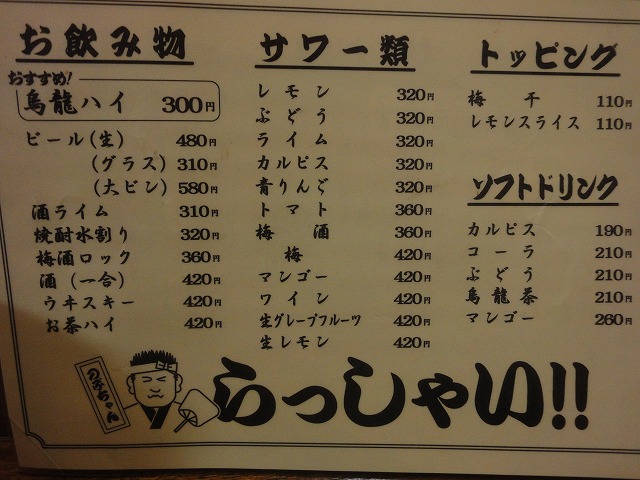 お飲み物
おすすめ!
烏龍ハイ 300円
ビール(生) 480円
(グラス) 310円
(大ビン) 580円
酒ライム 310円
焼酎水割り 320円
梅酒ロック 360円
酒(一合) 420円
ウヰスキー 420円
お茶ハイ 420円
サワー類
レモン 320円
ぶどう 320円
ライム 320円
カルピス 320円
青りんご 320円
トマト 360円
梅酒 360円
梅 420円
マンゴー 420円
ワイン 420円
生グレープフルーツ 420円
生レモン 420円
トッピング
梅干 110円
レモンスライス 110円
ソフトドリンク
カルピス 190円
コーラ 210円
ぶどう 210円
烏龍茶 210円
マンゴー 260円
らっしゃい!!